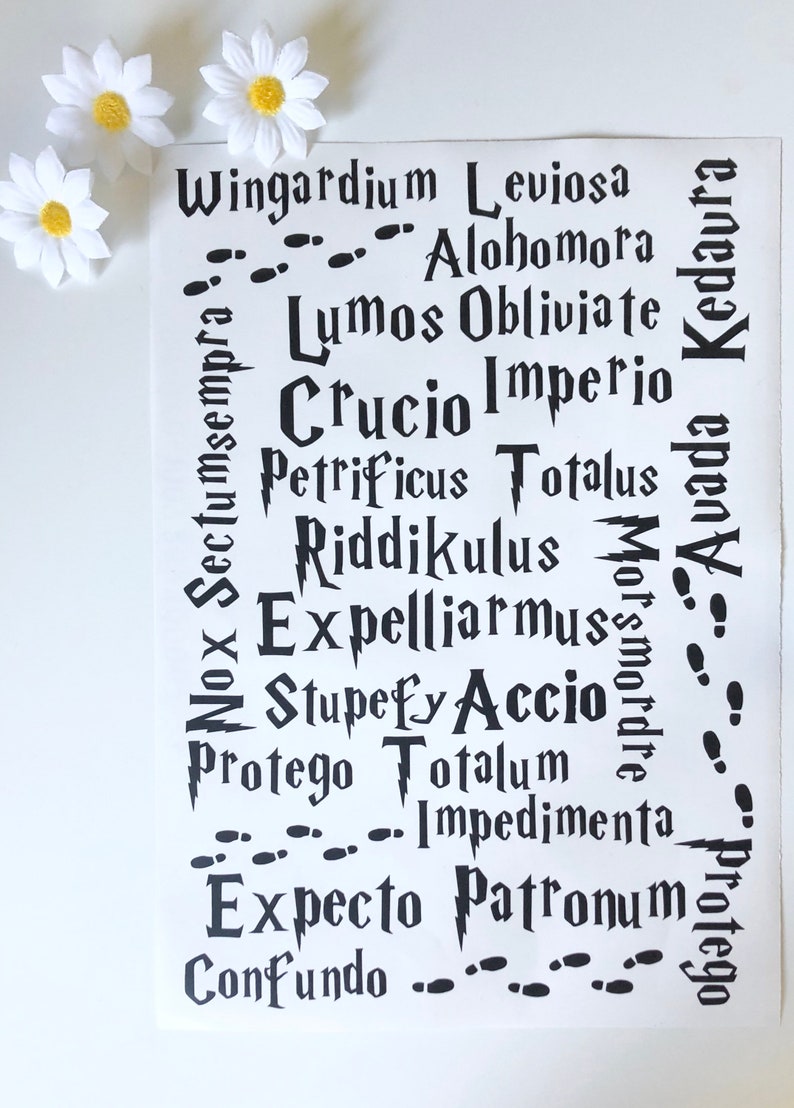 Wingardium Leviosa
Alohomora
Lumos Obliviate
Crucio Imperio
Petrificus Totalus
Riddikulus
Expelliarmus
Stupefy Accio
Protego Totalum
Impedimenta
Expecto Patronum
Confundo
Nox Sectumsempra
Morsmordre
Avada Kedavra
Protego